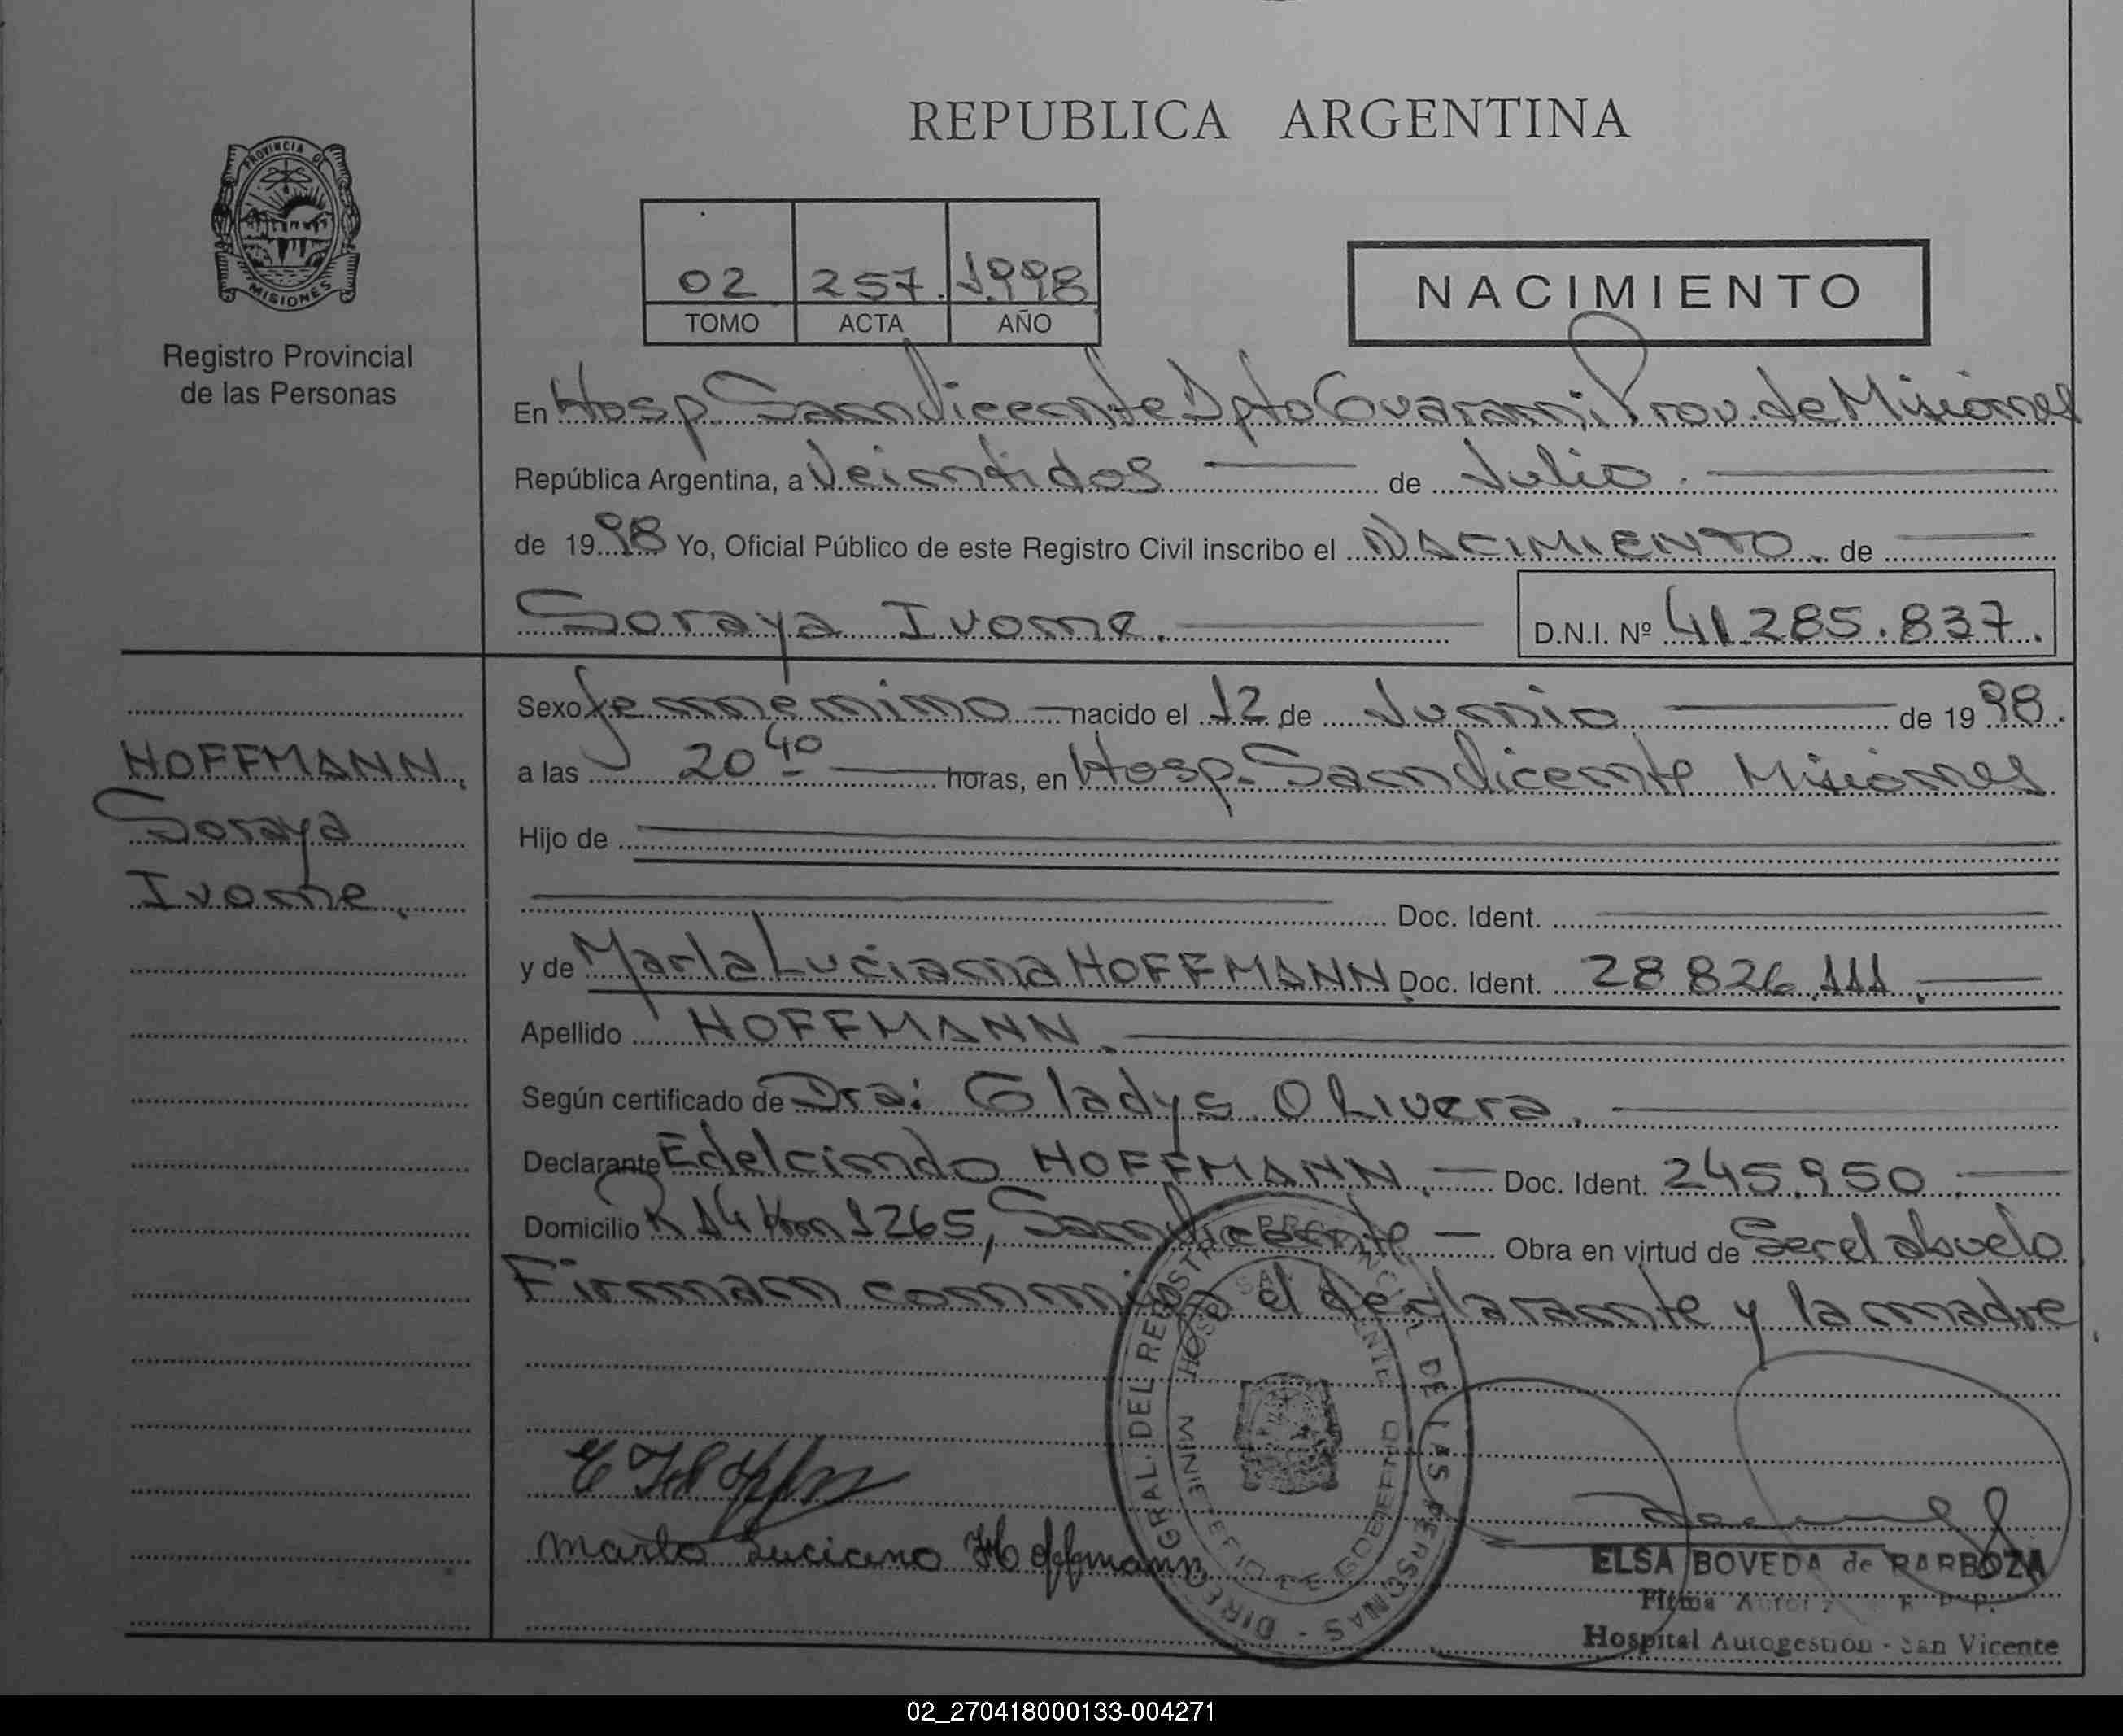 REPUBLICA ARGENTINA
PROVINCIA DE
MISIONES
Registro Provincial
de las Personas
02 257. 1998
TOMO ACTA AÑO
NACIMIENTO
En Hosp. San Vicente Dpto Guaraní Prov. de Misiones
República Argentina, a Veintidos de Julio.
de 1998 Yo, Oficial Público de este Registro Civil inscribo el NACIMIENTO. de
Soraya Ivone. D.N.I. Nº 41.285.837.
Sexo femenino nacido el 12 de Junio de 1998.
HOFFMANN,
a las 20 40 horas, en Hosp. San Vicente Misiones
Soraya
Hijo de
Ivone.
Doc. Ident.
y de Marla Luciana HOFFMANN Doc. Ident. 28 826.111.
Apellido HOFFMANN.
Según certificado de Dra: Gladys Olivera.
Declarante Edelcindo HOFFMANN. Doc. Ident. 245.950.
Domicilio R 14 Km 1265, San Vicente Obra en virtud de Ser el abuelo
Firman conmigo el declarante y la madre
DIREC. GRAL. DEL REGISTRO PROVINCIAL DE LAS PERSONAS -
HOSP. SAN VICENTE
MINISTERIO DE GOBIERNO
Marla Luciana Hoffmann
ELSA BOVEDA de BARBOZA
Firma
Hospital Autogestión - San Vicente
02_270418000133-004271